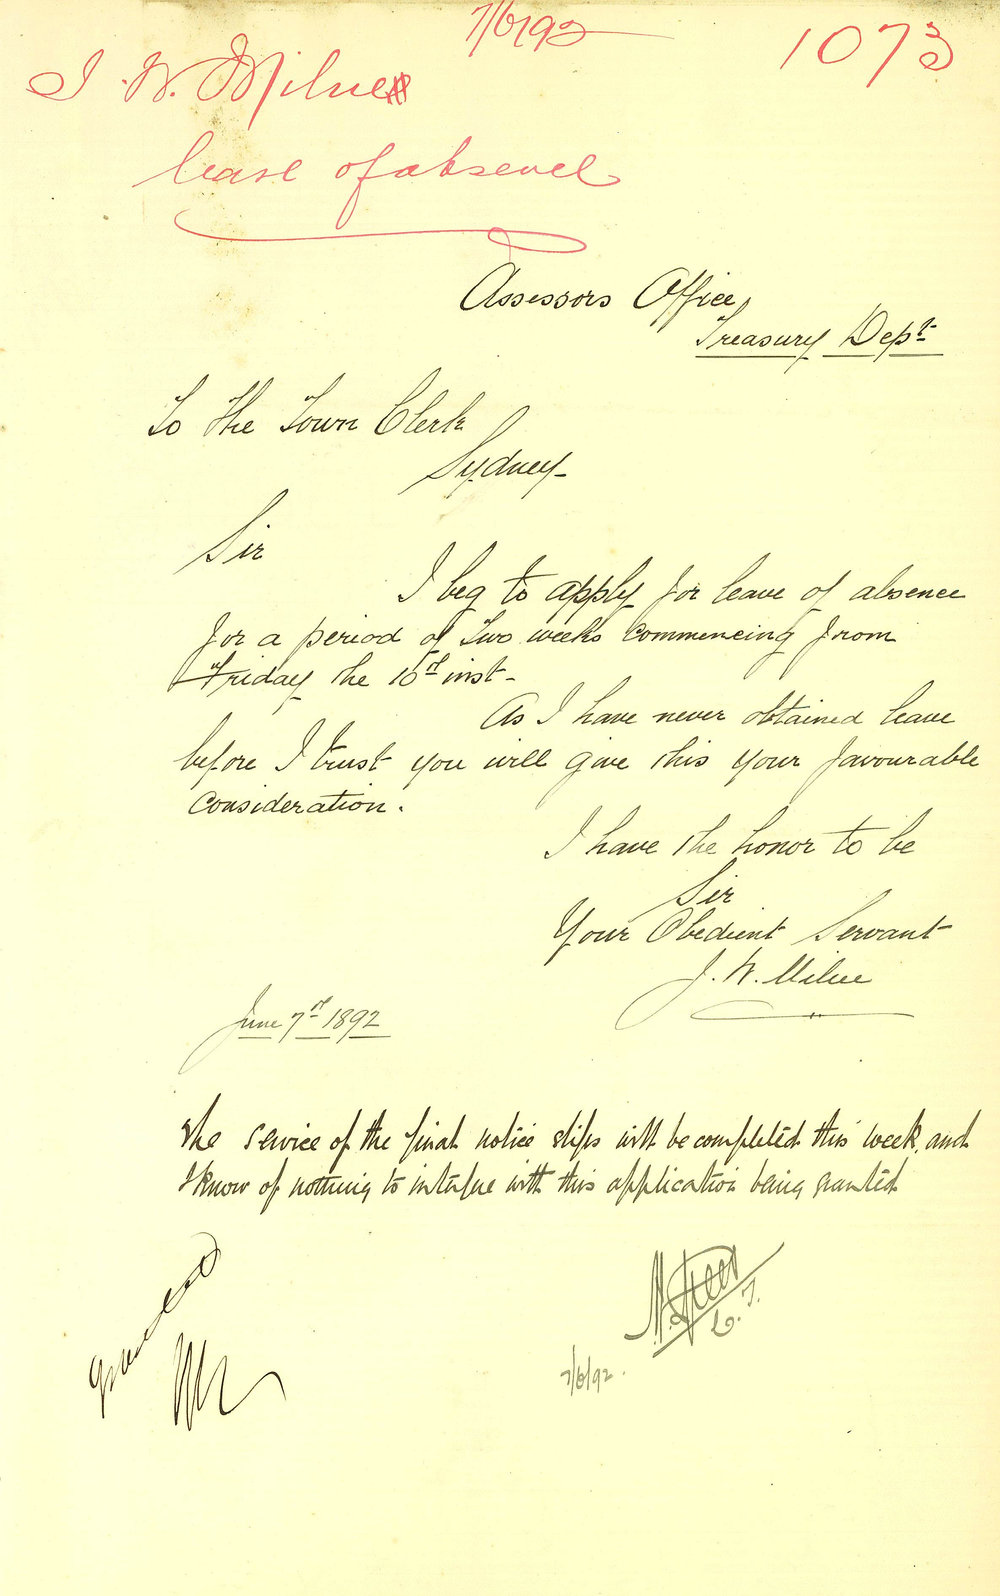 7/6/92
1073
J. W. Milne
leave of absence
Assessors Office,
Treasury Dept
To The Town Clerk
Sydney-
Sir
I beg to apply for leave of absence
for a period of two weeks commencing from
Friday the 10th inst-
As I have never obtained leave
before I trust you will give this your favourable
consideration.
I have the honor to be
Sir
Your Obedient Servant
J. W. Milne
June 7th 1892
The service of the final notice slips will be completed this week, and
I know of nothing to interfere with this application being granted
granted
7/6/92.